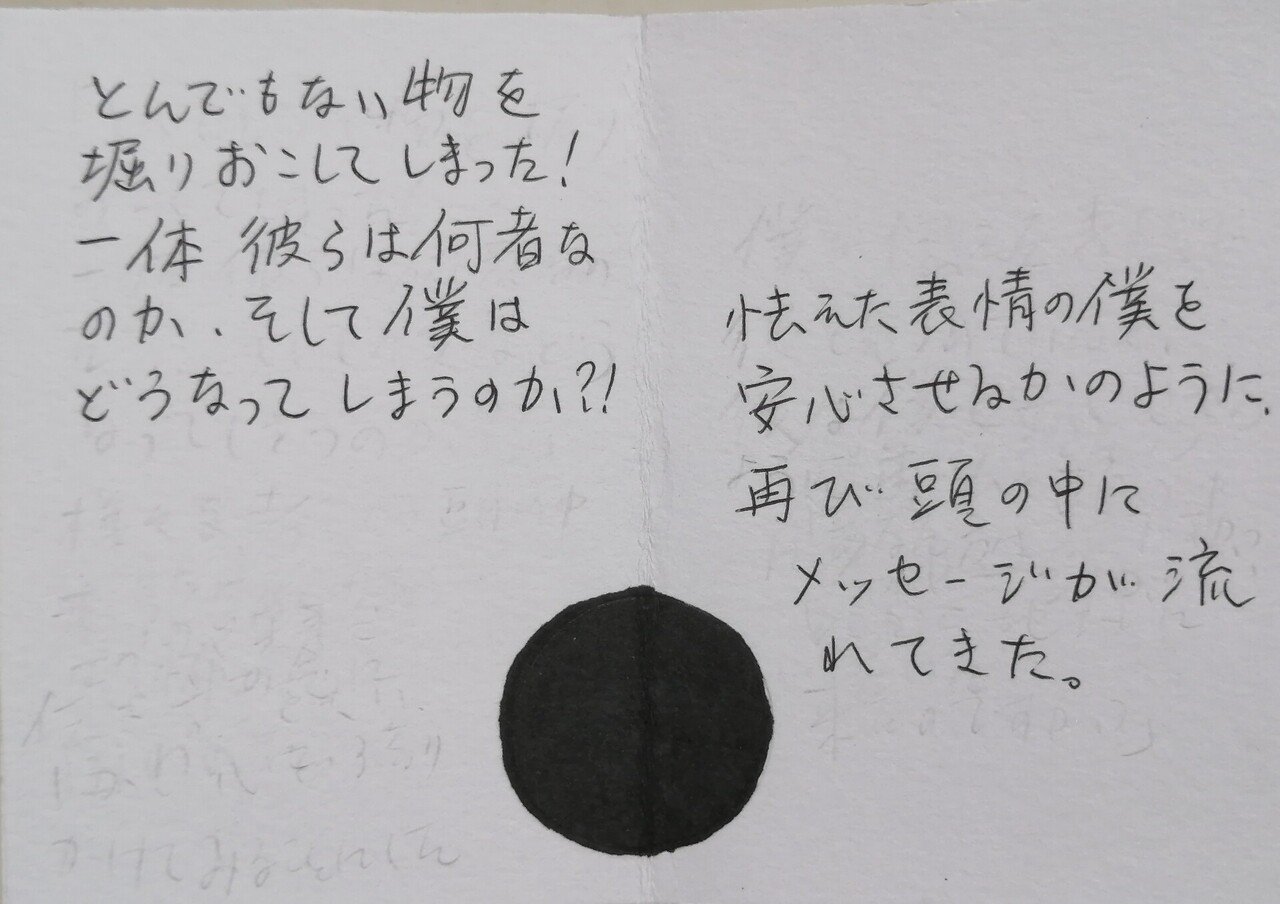 とんでもない物を
堀りおこしてしまった！
一体 彼らは何者な
のか、そして僕は
どうなってしまうのか?!
怯えた表情の僕を
安心させるかのように、
再び頭の中に
メッセージが流
れてきた。